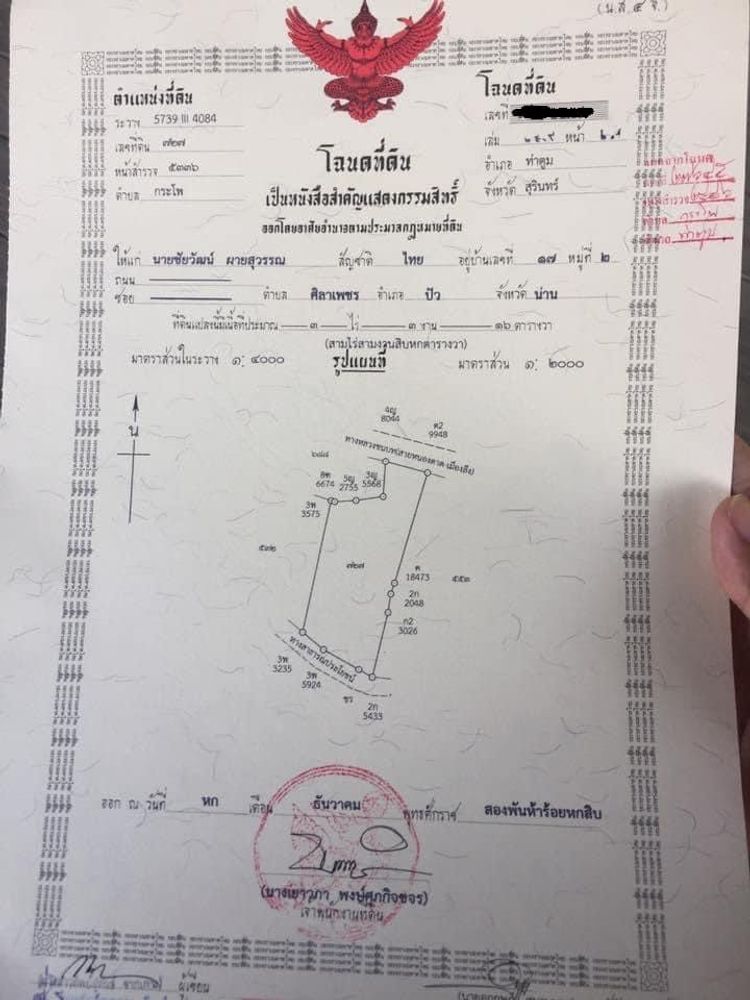 (น.ส.๔ จ.)
ตำแหน่งที่ดิน
ระวาง 5739 III 4084
เลขที่ดิน ๗๒๗
หน้าสำรวจ ๕๓๓๖
ตำบล กระโพ
โฉนดที่ดิน
เลขที่
เล่ม หน้า
อำเภอ ท่าตูม
จังหวัด สุรินทร์
โฉนดที่ดิน
เป็นหนังสือสำคัญแสดงกรรมสิทธิ์
ออกโดยอาศัยอำนาจตามประมวลกฎหมายที่ดิน
ให้แก่ นายชัยวัฒน์ ผายสุวรรณ สัญชาติ ไทย อยู่บ้านเลขที่ ๑๗ หมู่ที่ ๒
ถนน
ซอย ตำบล ศิลาเพชร อำเภอ ปัว จังหวัด น่าน
ที่ดินแปลงนี้มีเนื้อที่ประมาณ ๓ ไร่ ๓ งาน ๑๖ ตารางวา
(สามไร่สามงานสิบหกตารางวา)
มาตราส่วนในระวาง ๑: ๔๐๐๐ รูปแผนที่ มาตราส่วน ๑: ๒๐๐๐
น
8044
ต2
9948
ทางหลวงชนบทสายหนองตาด-เมืองลีง
6674
5ญ
2755
3ญ
5568
3พ
3575
๕๗๒
๗๒๗
ค
18473
๕๕๓
2ก
2048
ก2
3026
ทางสาธารณประโยชน์
3พ
3235
3พ
5924
ชร
2ก
5433
ออก ณ วันที่ หก เดือน ธันวาคม พุทธศักราช สองพันห้าร้อยหกสิบ
(นางเยาวภา พงษ์ศุภกิจขจร)
เจ้าพนักงานที่ดิน
ผู้เขียน